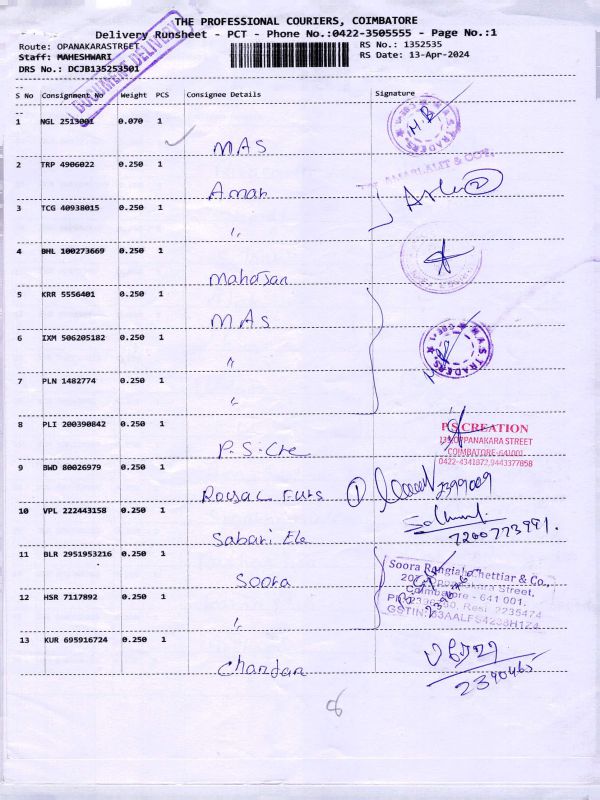 THE PROFESSIONAL COURIERS, COIMBATORE
Delivery Runsheet - PCT - Phone No.:0422-3505555 - Page No.:1
Route: OPANAKARASTREET RS No.: 1352535
Staff: MAHESHWARI RS Date: 13-Apr-2024
DRS No.: DCJB135253501
DOCUMENT DELIVERY
S No Consignment No Weight PCS Consignee Details Signature
1 NGL 2513001 0.070 1
MAS
M.A.S. TRADERS
2 TRP 4906022 0.250 1
Amar
AMARLALIT & COY.
3 TCG 40938015 0.250 1
"
4 BHL 100273669 0.250 1
Mahajan
5 KRR 5556401 0.250 1
MAS
6 IXM 506205182 0.250 1
"
M.A.S. TRADERS
7 PLN 1482774 0.250 1
"
8 PLI 200390842 0.250 1
P.S. Cre
P.S CREATION
139, OPPANAKARA STREET
COIMBATORE-641001
9 BWD 80026979 0.250 1
2399009
10 VPL 222443158 0.250 1
Sabari Ele
11 BLR 2951953216 0.250 1
Soora
Soora Rangiah Chettiar & Co.,
Oppanakara Street,
Coimbatore - 641 001.
Resi: 2235474
12 HSR 7117892 0.250 1
"
13 KUR 695916724 0.250 1
Chandan
2390465
8